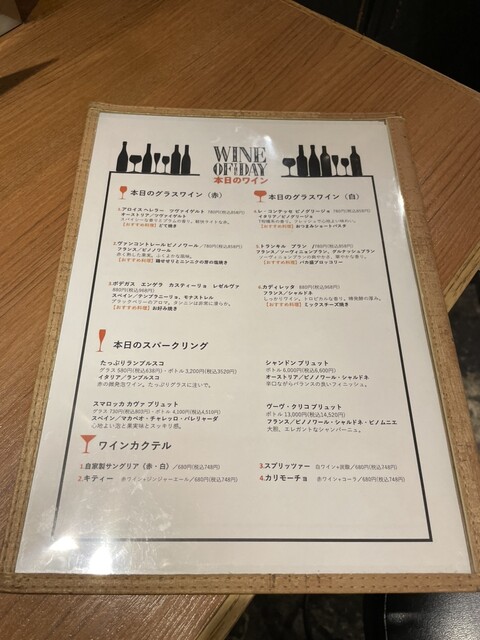 WINE
OF THE DAY
本日のワイン
本日のグラスワイン（赤）
1.アロイスヘレラー ツヴァイゲルト 780円(税込858円)
オーストリア/ツヴァイゲルト
【おすすめ料理】どて焼き
2.ヴァンコントレールピノノワール/780円(税込858円)
フランス/ピノノワール
赤く熟した果実。ふくよかな旨味。
【おすすめ料理】
3.ボデガス エンゲラ カスティーリョ レゼルヴァ
880円(税込968円)
スペイン/テンプラニーリョ、モナストレル
ブラックベリーのアロマ。タンニンは非常に滑らか。
【おすすめ料理】お好み焼き
本日のグラスワイン（白）
4.レ・コンテッセ ピノグリージョ 780円(税込858円)
イタリア/ピノグリージョ
【おすすめ料理】おつまみショートパスタ
5.トランキル ブラン 780円(税込858円)
フランス/ソーヴィニョンブラン、グルナッシュブラン
【おすすめ料理】バカ盛ブロッコリー
6.カディレッタ 880円(税込968円)
フランス/シャルドネ
しっかりワイン。トロピカルな香り。
【おすすめ料理】ミックスチーズ焼き
本日のスパークリング
たっぷりランブルスコ
グラス 580円(税込638円)・ボトル 3,200円(税込3520円)
イタリア/ランブルスコ
赤の微発泡ワイン。たっぷりグラスに注いで。
シャンドン ブリュット
ボトル 6,000円(税込6,600円)
オーストリア/ピノノワール・シャルドネ
辛口ながらバランスの良いフィニッシュ。
スマロッカ カヴァ ブリュット
グラス 730円(税込803円)・ボトル 4,100円(税込4,510円)
スペイン/マカベオ・チャレッロ・パレリャーダ
心地よい泡と果実味とスッキリ感。
ヴーヴ・クリコ ブリュット
ボトル 13,000円(税込14,520円)
フランス/ピノノワール・シャルドネ・ピノムニエ
大胆、エレガントなシャンパーニュ。
ワインカクテル
1.自家製サングリア（赤・白）/680円(税込748円)
2.キティー 赤ワイン+ジンジャーエール/680円(税込748円)
3.スプリッツァー 白ワイン+炭酸/680円(税込748円)
4.カリモーチョ 赤ワイン+コーラ/680円(税込748円)